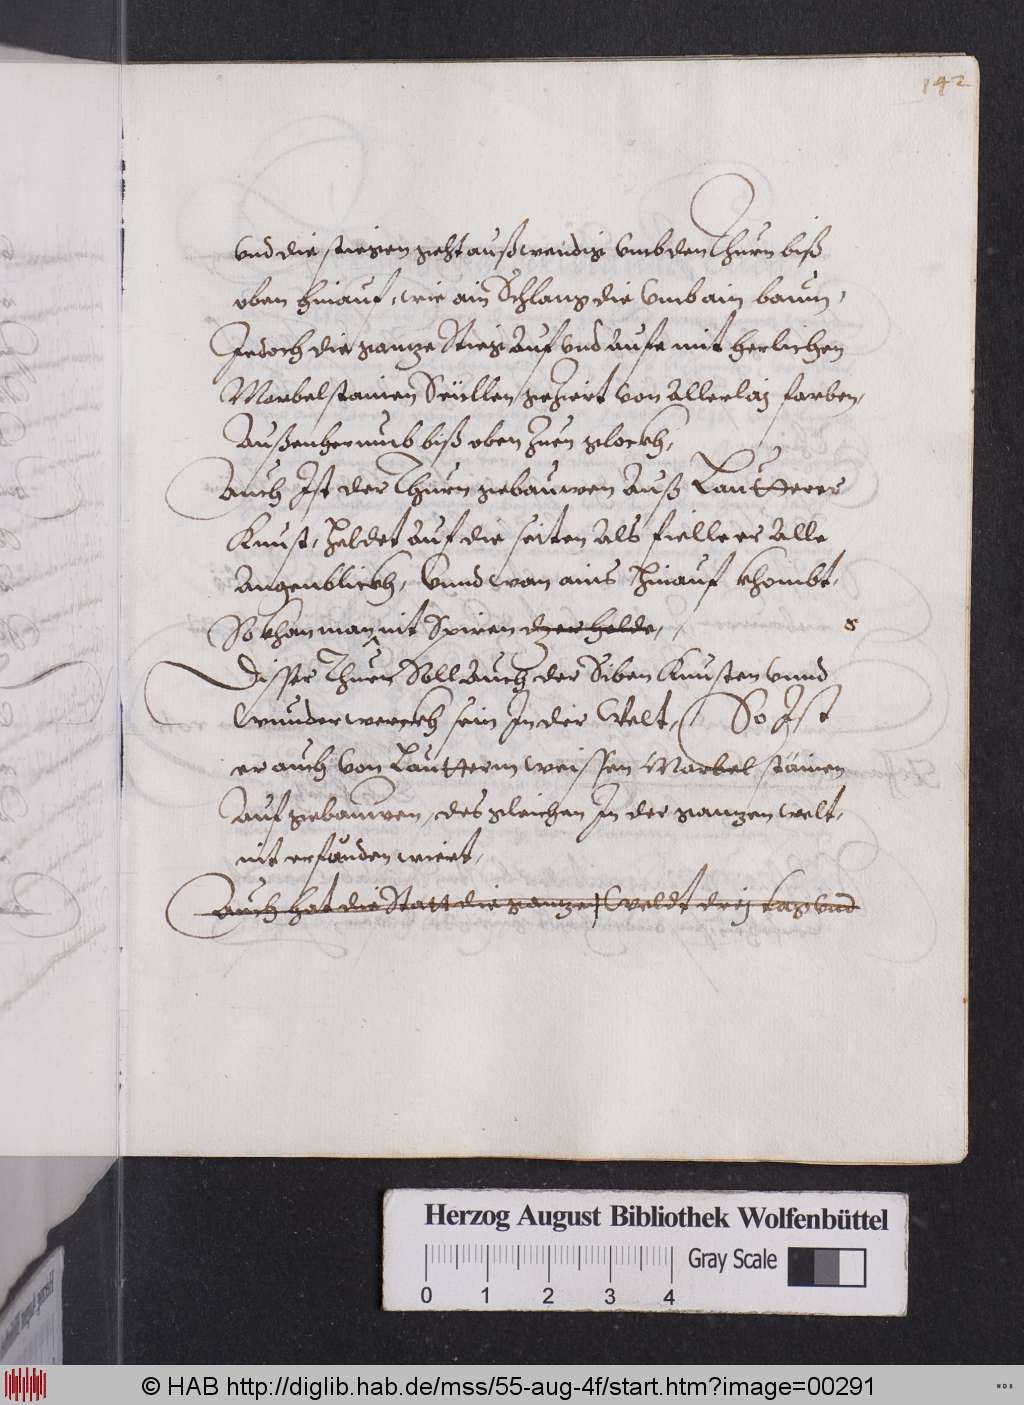 142
vnd die stiegen geht außwendig vmb den Thurn biß
oben hinauf, wie ain Schlang die vmb ain baum,
Jedoch die gantze Stieg auf vnd aufe mit herlichen
Marbelstainen Seüllen geziert von allerlaÿ farben,
Außenherumb biß oben zuen glockh,
Auch Ist der Thurn gebauwen auß Lautterer
Kunst, heldet auf die seiten als fielle er alle
augenblickh, Vnnd wan ains hinauf khombt,
So khan man nit Spiren
Disser Thurn Soll auch der Siben Kunsten vnnd
wunderwerckh sein In der Welt, So Ist
er auch von Lautterm weissen Marbel stainen
Auf gebauwen, des gleichen In der gantzen welt,
nit erfunden wiert,
Auch hat die Statt die gantze Weldt dreÿ tag vnd
Herzog August Bibliothek Wolfenbüttel
Gray Scale
0 1 2 3 4
© HAB http://diglib.hab.de/mss/55-aug-4f/start.htm?image=00291